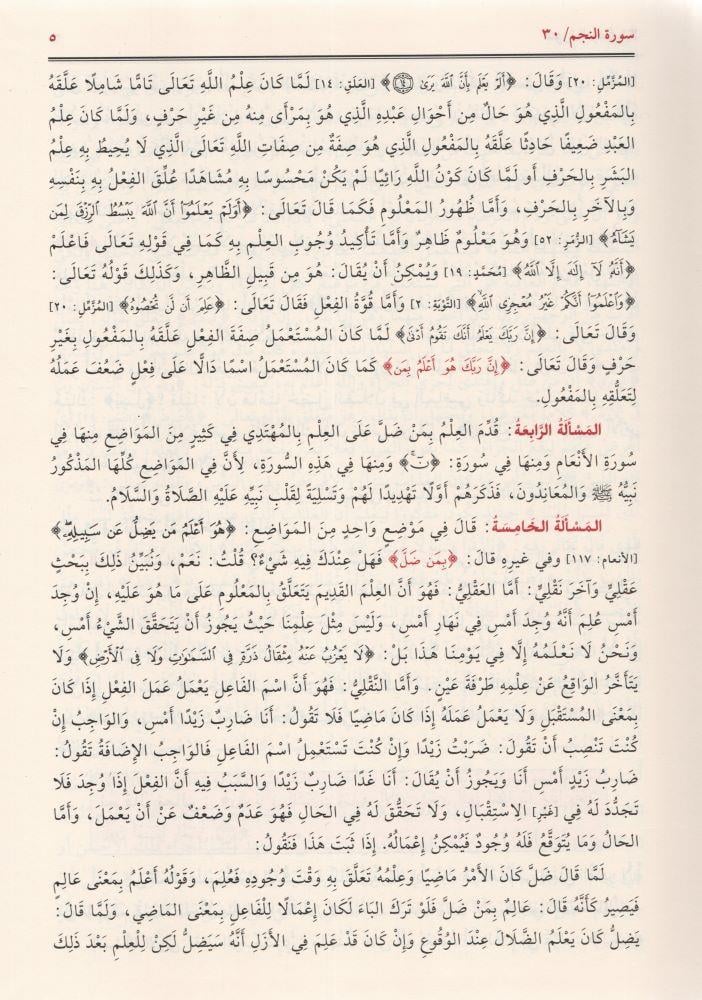 سورة النجم/ ٣٠
٥
[المُزَّمِّل: ٢٠] وَقَالَ: ﴿أَلَمْ يَعْلَم بِأَنَّ اللَّهَ يَرَىٰ ﴿١٤﴾﴾ [العَلَق: ١٤] لَمَّا كَانَ عِلْمُ اللَّهِ تَعَالَى تَامًّا شَامِلًا عَلَّقَهُ
بِالمَفْعُولِ الَّذِي هُوَ حَالٌ مِن أَحْوَالِ عَبْدِهِ الَّذِي هُوَ بِمَرْأَى مِنهُ مِن غَيرِ حَرْفٍ، وَلَمَّا كَانَ عِلْمُ
العَبْدِ ضَعِيفًا حَادِثًا عَلَّقَهُ بِالمَفْعُولِ الَّذِي هُوَ صِفَةٌ مِن صِفَاتِ اللَّهِ تَعَالَى الَّذِي لَا يُحِيطُ بِهِ عِلْمُ
البَشَرِ بِالحَرْفِ أَو لَمَّا كَانَ كَوْنُ اللَّهِ رَائِيًا لَمْ يَكُنْ مَحْسُوسًا بِهِ مُشَاهَدًا عُلِّقَ الفِعْلُ بِهِ بِنَفْسِهِ
وَبِالآخَرِ بِالحَرْفِ، وَأَمَّا ظُهُورُ المَعْلُومِ فَكَمَا قَالَ تَعَالَى: ﴿أَوَلَمْ يَعْلَمُوٓا۟ أَنَّ ٱللَّهَ يَبْسُطُ ٱلرِّزْقَ لِمَن
يَشَآءُ﴾ [الزُّمَر: ٥٢] وَهُوَ مَعْلُومٌ ظَاهِرٌ وَأَمَّا تَأْكِيدُ وُجُوبِ العِلْمِ بِهِ كَمَا فِي قَوْلِهِ تَعَالَى فَاعْلَمْ
﴿أَنَّهُ لَآ إِلَٰهَ إِلَّا ٱللَّهُ﴾ [مُحَمَّد: ١٩] وَيُمْكِنُ أَنْ يُقَالَ: هُوَ مِن قَبِيلِ الظَّاهِرِ، وَكَذَلِكَ قَوْلُهُ تَعَالَى:
﴿وَٱعْلَمُوٓا۟ أَنَّكُمْ غَيْرُ مُعْجِزِى ٱللَّهِ﴾ [التَّوْبَة: ٢] وَأَمَّا قُوَّةُ الفِعْلِ فَقَالَ تَعَالَى: ﴿عَلِمَ أَن لَّن تُحْصُوهُ﴾ [المُزَّمِّل: ٢٠]
وَقَالَ تَعَالَى: ﴿إِنَّ رَبَّكَ يَعْلَمُ أَنَّكَ تَقُومُ أَدْنَىٰ﴾ لَمَّا كَانَ المُسْتَعْمَلُ صِفَةَ الفِعْلِ عَلَّقَهُ بِالمَفْعُولِ بِغَيرِ
حَرْفٍ وَقَالَ تَعَالَى: ﴿إِنَّ رَبَّكَ هُوَ أَعْلَمُ بِمَن﴾ كَمَا كَانَ المُسْتَعْمَلُ اسْمًا دَالًّا عَلَى فِعْلٍ ضَعُفَ عَمَلُهُ
لِتَعَلُّقِهِ بِالمَفْعُولِ.
المَسْأَلَةُ الرَّابِعَةُ: قُدِّمَ العِلْمُ بِمَن ضَلَّ عَلَى العِلْمِ بِالمُهْتَدِي فِي كَثِيرٍ مِنَ المَوَاضِعِ مِنهَا فِي
سُورَةِ الأَنْعَامِ وَمِنهَا فِي سُورَةِ: ﴿نٓ﴾ وَمِنهَا فِي هَذِهِ السُّورَةِ، لِأَنَّ فِي المَوَاضِعِ كُلِّهَا المَذْكُورُ
نَبِيُّهُ ﷺ وَالمُعَانِدُونَ، فَذَكَرَهُمْ أَوَّلًا تَهْدِيدًا لَهُمْ وَتَسْلِيَةً لِقَلْبِ نَبِيِّهِ عَلَيْهِ الصَّلَاةُ وَالسَّلَامُ.
المَسْأَلَةُ الخَامِسَةُ: قَالَ فِي مَوْضِعٍ وَاحِدٍ مِنَ المَوَاضِعِ: ﴿هُوَ أَعْلَمُ مَن يَضِلُّ عَن سَبِيلِهِۦ﴾
[الأنعام: ١١٧] وفي غيرِهِ قالَ: ﴿بِمَن ضَلَّ﴾ فَهَلْ عِنْدَكَ فِيهِ شَيْءٌ؟ قُلْتُ: نَعَمْ، وَنُبَيِّنُ ذَلِكَ بِبَحْثٍ
عَقْلِيٍّ وَآخَرَ نَقْلِيٍّ: أَمَّا العَقْلِيُّ: فَهُوَ أَنَّ العِلْمَ القَدِيمَ يَتَعَلَّقُ بِالمَعْلُومِ عَلَى مَا هُوَ عَلَيْهِ، إِنْ وُجِدَ
أَمْسِ عُلِمَ أَنَّهُ وُجِدَ أَمْسِ فِي نَهَارِ أَمْسِ، وَلَيْسَ مِثْلَ عِلْمِنَا حَيْثُ يَجُوزُ أَنْ يَتَحَقَّقَ الشَّيْءُ أَمْسِ،
وَنَحْنُ لَا نَعْلَمُهُ إِلَّا فِي يَوْمِنَا هَذَا بَلْ: ﴿لَا يَعْزُبُ عَنْهُ مِثْقَالُ ذَرَّةٍ فِى ٱلسَّمَٰوَٰتِ وَلَا فِى ٱلْأَرْضِ﴾ وَلَا
يَتَأَخَّرُ الوَاقِعُ عَنْ عِلْمِهِ طَرْفَةَ عَيْنٍ. وَأَمَّا النَّقْلِيُّ: فَهُوَ أَنَّ اسْمَ الفَاعِلِ يَعْمَلُ عَمَلَ الفِعْلِ إِذَا كَانَ
بِمَعْنَى المُسْتَقْبَلِ وَلَا يَعْمَلُ عَمَلَهُ إِذَا كَانَ مَاضِيًا فَلَا تَقُولُ: أَنَا ضَارِبٌ زَيْدًا أَمْسِ، وَالوَاجِبُ إِنْ
كُنْتَ تَنْصِبُ أَنْ تَقُولَ: ضَرَبْتُ زَيْدًا وَإِنْ كُنْتَ تَسْتَعْمِلُ اسْمَ الفَاعِلِ فَالوَاجِبُ الإِضَافَةُ تَقُولُ:
ضَارِبُ زَيْدٍ أَمْسِ أَنَا وَيَجُوزُ أَنْ يُقَالَ: أَنَا غَدًا ضَارِبٌ زَيْدًا وَالسَّبَبُ فِيهِ أَنَّ الفِعْلَ إِذَا وُجِدَ فَلَا
تَجَدُّدَ لَهُ فِي [غَيْرِ] الِاسْتِقْبَالِ، وَلَا تَحَقُّقَ لَهُ فِي الحَالِ فَهُوَ عَدَمٌ وَضَعُفَ عَنْ أَنْ يَعْمَلَ، وَأَمَّا
الحَالُ وَمَا يُتَوَقَّعُ فَلَهُ وُجُودٌ فَيُمْكِنُ إِعْمَالُهُ. إِذَا ثَبَتَ هَذَا فَنَقُولُ:
لَمَّا قَالَ ضَلَّ كَانَ الأَمْرُ مَاضِيًا وَعِلْمُهُ تَعَلَّقَ بِهِ وَقْتَ وُجُودِهِ فَعُلِمَ، وَقَوْلُهُ أَعْلَمُ بِمَعْنَى عَالِمٍ
فَيَصِيرُ كَأَنَّهُ قَالَ: عَالِمٌ بِمَن ضَلَّ فَلَوْ تَرَكَ البَاءَ لَكَانَ إِعْمَالًا لِلْفَاعِلِ بِمَعْنَى المَاضِي، وَلَمَّا قَالَ:
يَضِلُّ كَانَ يَعْلَمُ الضَّلَالَ عِنْدَ الوُقُوعِ وَإِنْ كَانَ قَدْ عَلِمَ فِي الأَزَلِ أَنَّهُ سَيَضِلُّ لَكِنْ لِلْعِلْمِ بَعْدَ ذَلِكَ